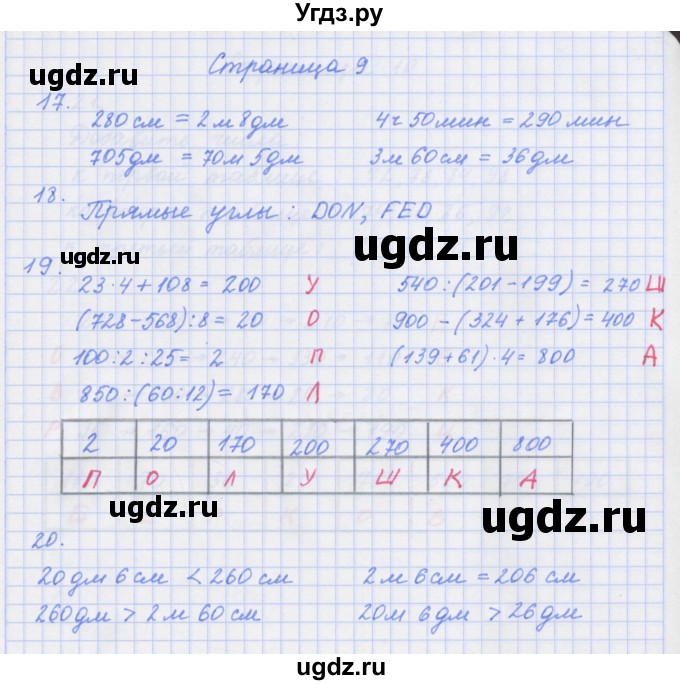 Угдз.ру
Страница 9
ugdz.ru
ugdz.ru
17.
280 см = 2 м 8 дм 4 ч 50 мин = 290 мин
705 дм = 70 м 5 дм 3 м 60 см = 36 дм
18.
Прямые углы: DON, FED
ugdz.ru
ugdz.ru
19.
23·4+108 = 200 У 540:(201-199) = 270 Ш
(728-568):8 = 20 О 900-(324+176) = 400 К
100:2:25 = 2 П (139+61)·4 = 800 А
850:(60:12) = 170 Л
2 20 170 200 270 400 800
П О Л У Ш К А
ugdz.ru
ugdz.ru
20.
20 дм 6 см < 260 см 2 м 6 см = 206 см
260 дм > 2 м 60 см 20 м 6 дм > 26 дм
ugdz.ru
ugdz.ru
ugdz.ru